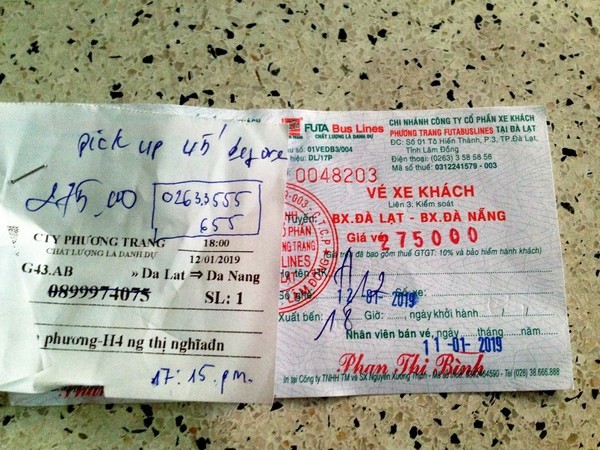 pick up 45'
275.000
02633555
655
CTY PHƯƠNG TRANG 18:00
CHẤT LƯỢNG LÀ DANH DỰ 12/01/2019
G43.AB » Da Lat ⇒ Da Nang
0899974075 SL: 1
phương-H4 ng thị nghĩadn
17:15.p.m.
FUTA Bus Lines
CHẤT LƯỢNG LÀ DANH DỰ
số: 01VEDB3/004
hiệu: DL/17P
0048203
CHI NHÁNH CÔNG TY CỔ PHẦN XE KHÁCH
PHƯƠNG TRANG FUTABUSLINES TẠI ĐÀ LẠT
ĐC: Số 01 Tô Hiến Thành, P.3, TP.Đà Lạt,
Tỉnh Lâm Đồng
Điện thoại: (0263) 3 58 58 56
Mã số thuế: 0312241579 -003
VÉ XE KHÁCH
Liên 3: Kiểm soát
Tuyến: BX.ĐÀ LẠT - BX.ĐÀ NẴNG
Giá vé: 275000
Giá trên đã bao gồm thuế GTGT: 10% và bảo hiểm hành khách)
Họ tên HK
Số ghế: Số xe:
12-01-2019
Xuất bến: 18 Giờ: , ngày khởi hành / /
Nhân viên bán vé, ngày tháng năm
11-01-2019
Phan Thi Bình
In tại Công ty TNHH TM và SX Nguyễn Xương Thịnh - Mã số thuế: - Tel: (028) 38.666.888